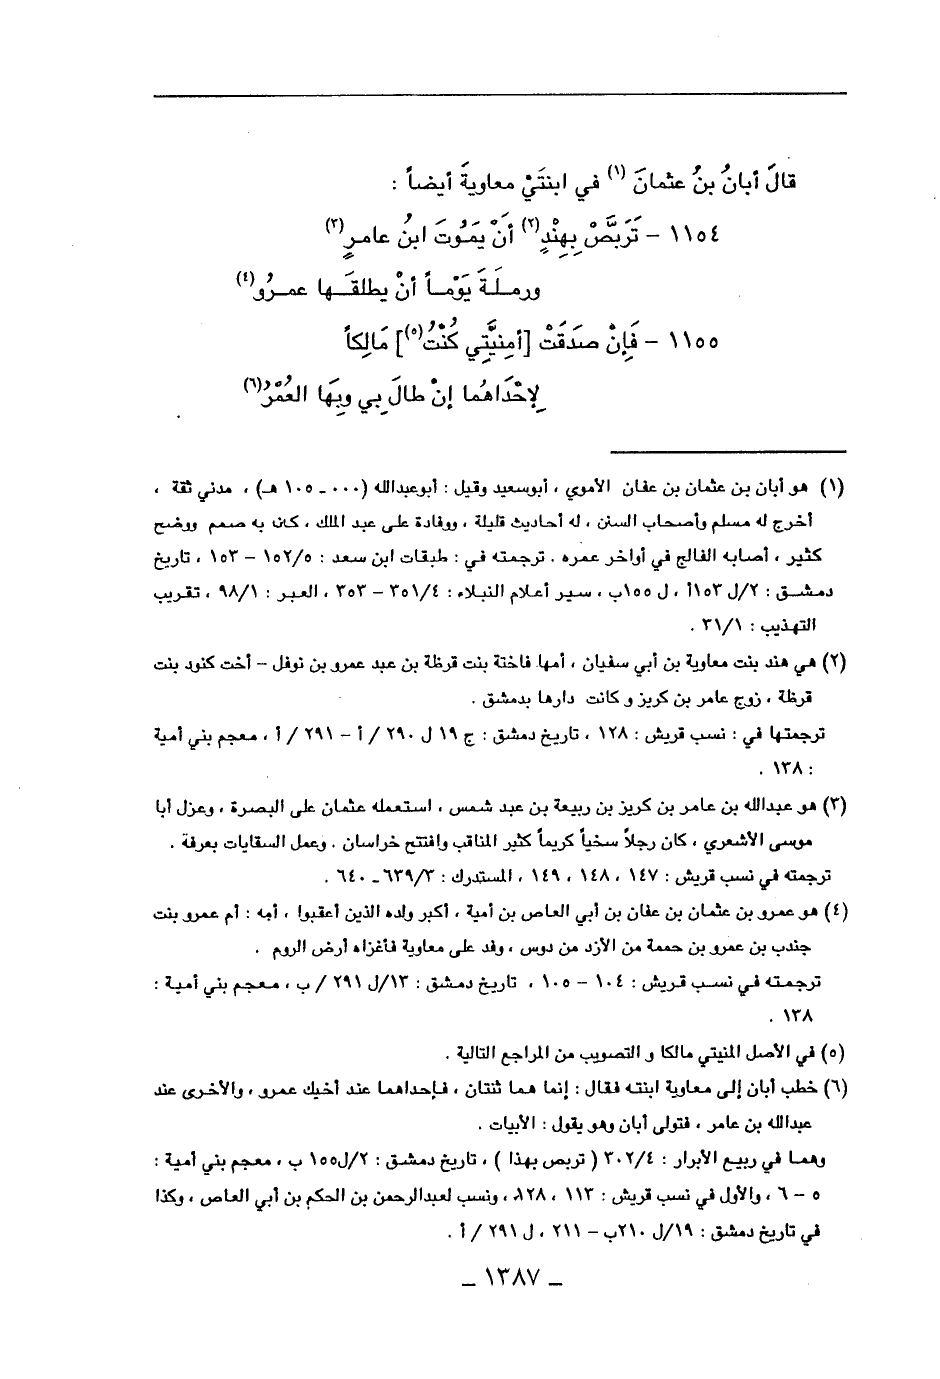 قالَ أبانُ بنُ عثمانَ (١) في ابنتَيْ معاويةَ أيضاً :
١١٥٤ – تَرَبَّصْ بِهِنْدٍ(٢) أنْ يَمُوتَ ابنُ عامرٍ(٣)
ورملَةَ يَوْماً أنْ يطلقَها عمرُو(٤)
١١٥٥ – فَإِنْ صدَقَتْ [أمنِيَّتِي كُنْتُ(٥)] مَالِكاً
لِإحْدَاهُما إنْ طالَ بِي وبِهَا العُمْرُ(٦)
(١) هو أبان بن عثمان بن عفان الأموي ، أبوسعيد وقيل : أبوعبدالله (٠٠٠ ـ ١٠٥ هـ) ، مدني ثقة ،
أخرج له مسلم وأصحاب السنن ، له أحاديث قليلة ، ووفادة على عبد الملك ، كان به صمم ووضح
كثير ، أصابه الفالج في أواخر عمره . ترجمته في : طبقات ابن سعد : ١٥٢/٥ – ١٥٣ ، تاريخ
دمشق : ٢/ل ١٥٣أ ، ل ١٥٥ب ، سير أعلام النبلاء : ٣٥١/٤ – ٣٥٣ ، العبر : ٩٨/١ ، تقريب
التهذيب : ٣١/١ .
(٢) هي هند بنت معاوية بن أبي سفيان ، أمها فاختة بنت قرظة بن عبد عمرو بن نوفل – أخت كنود بنت
قرظة ، زوج عامر بن كريز و كانت دارها بدمشق .
ترجمتها في : نسب قريش : ١٢٨ ، تاريخ دمشق : ج ١٩ ل ٢٩٠ / أ – ٢٩١ / أ ، معجم بني أمية
: ١٣٨ .
(٣) هو عبدالله بن عامر بن كريز بن ربيعة بن عبد شمس ، استعمله عثمان على البصرة ، وعزل أبا
موسى الأشعري ، كان رجلاً سخياً كريماً كثير المناقب وافتتح خراسان . وعمل السقايات بعرفة .
ترجمته في نسب قريش : ١٤٧ ، ١٤٨ ، ١٤٩ ، المستدرك : ٦٣٩/٣ ـ ٦٤٠ .
(٤) هو عمرو بن عثمان بن عفان بن أبي العاص بن أمية ، أكبر ولده الذين أعقبوا ، أمه : أم عمرو بنت
جندب بن عمرو بن حممة من الأزد من دوس ، وفد على معاوية فأغزاه أرض الروم .
ترجمته في نسب قريش : ١٠٤ – ١٠٥ ، تاريخ دمشق : ١٣/ل ٢٩١ / ب ، معجم بني أمية :
١٣٨ .
(٥) في الأصل المنيتي مالكا و التصويب من المراجع التالية .
(٦) خطب أبان إلى معاوية ابنته فقال : إنما هما ثنتان ، فإحداهما عند أخيك عمرو ، والأخرى عند
عبدالله بن عامر ، فتولى أبان وهو يقول : الأبيات .
وهما في ربيع الأبرار : ٣٠٢/٤ ( تربص بهذا ) ، تاريخ دمشق : ٢/ل١٥٥ ب ، معجم بني أمية :
٥ – ٦ ، والأول في نسب قريش : ١١٣ ، ١٢٨، ونسب لعبدالرحمن بن الحكم بن أبي العاص ، وكذا
في تاريخ دمشق : ١٩/ل ٢١٠ب – ٢١١ ، ل ٢٩١ / أ .
ـ ١٣٨٧ ـ